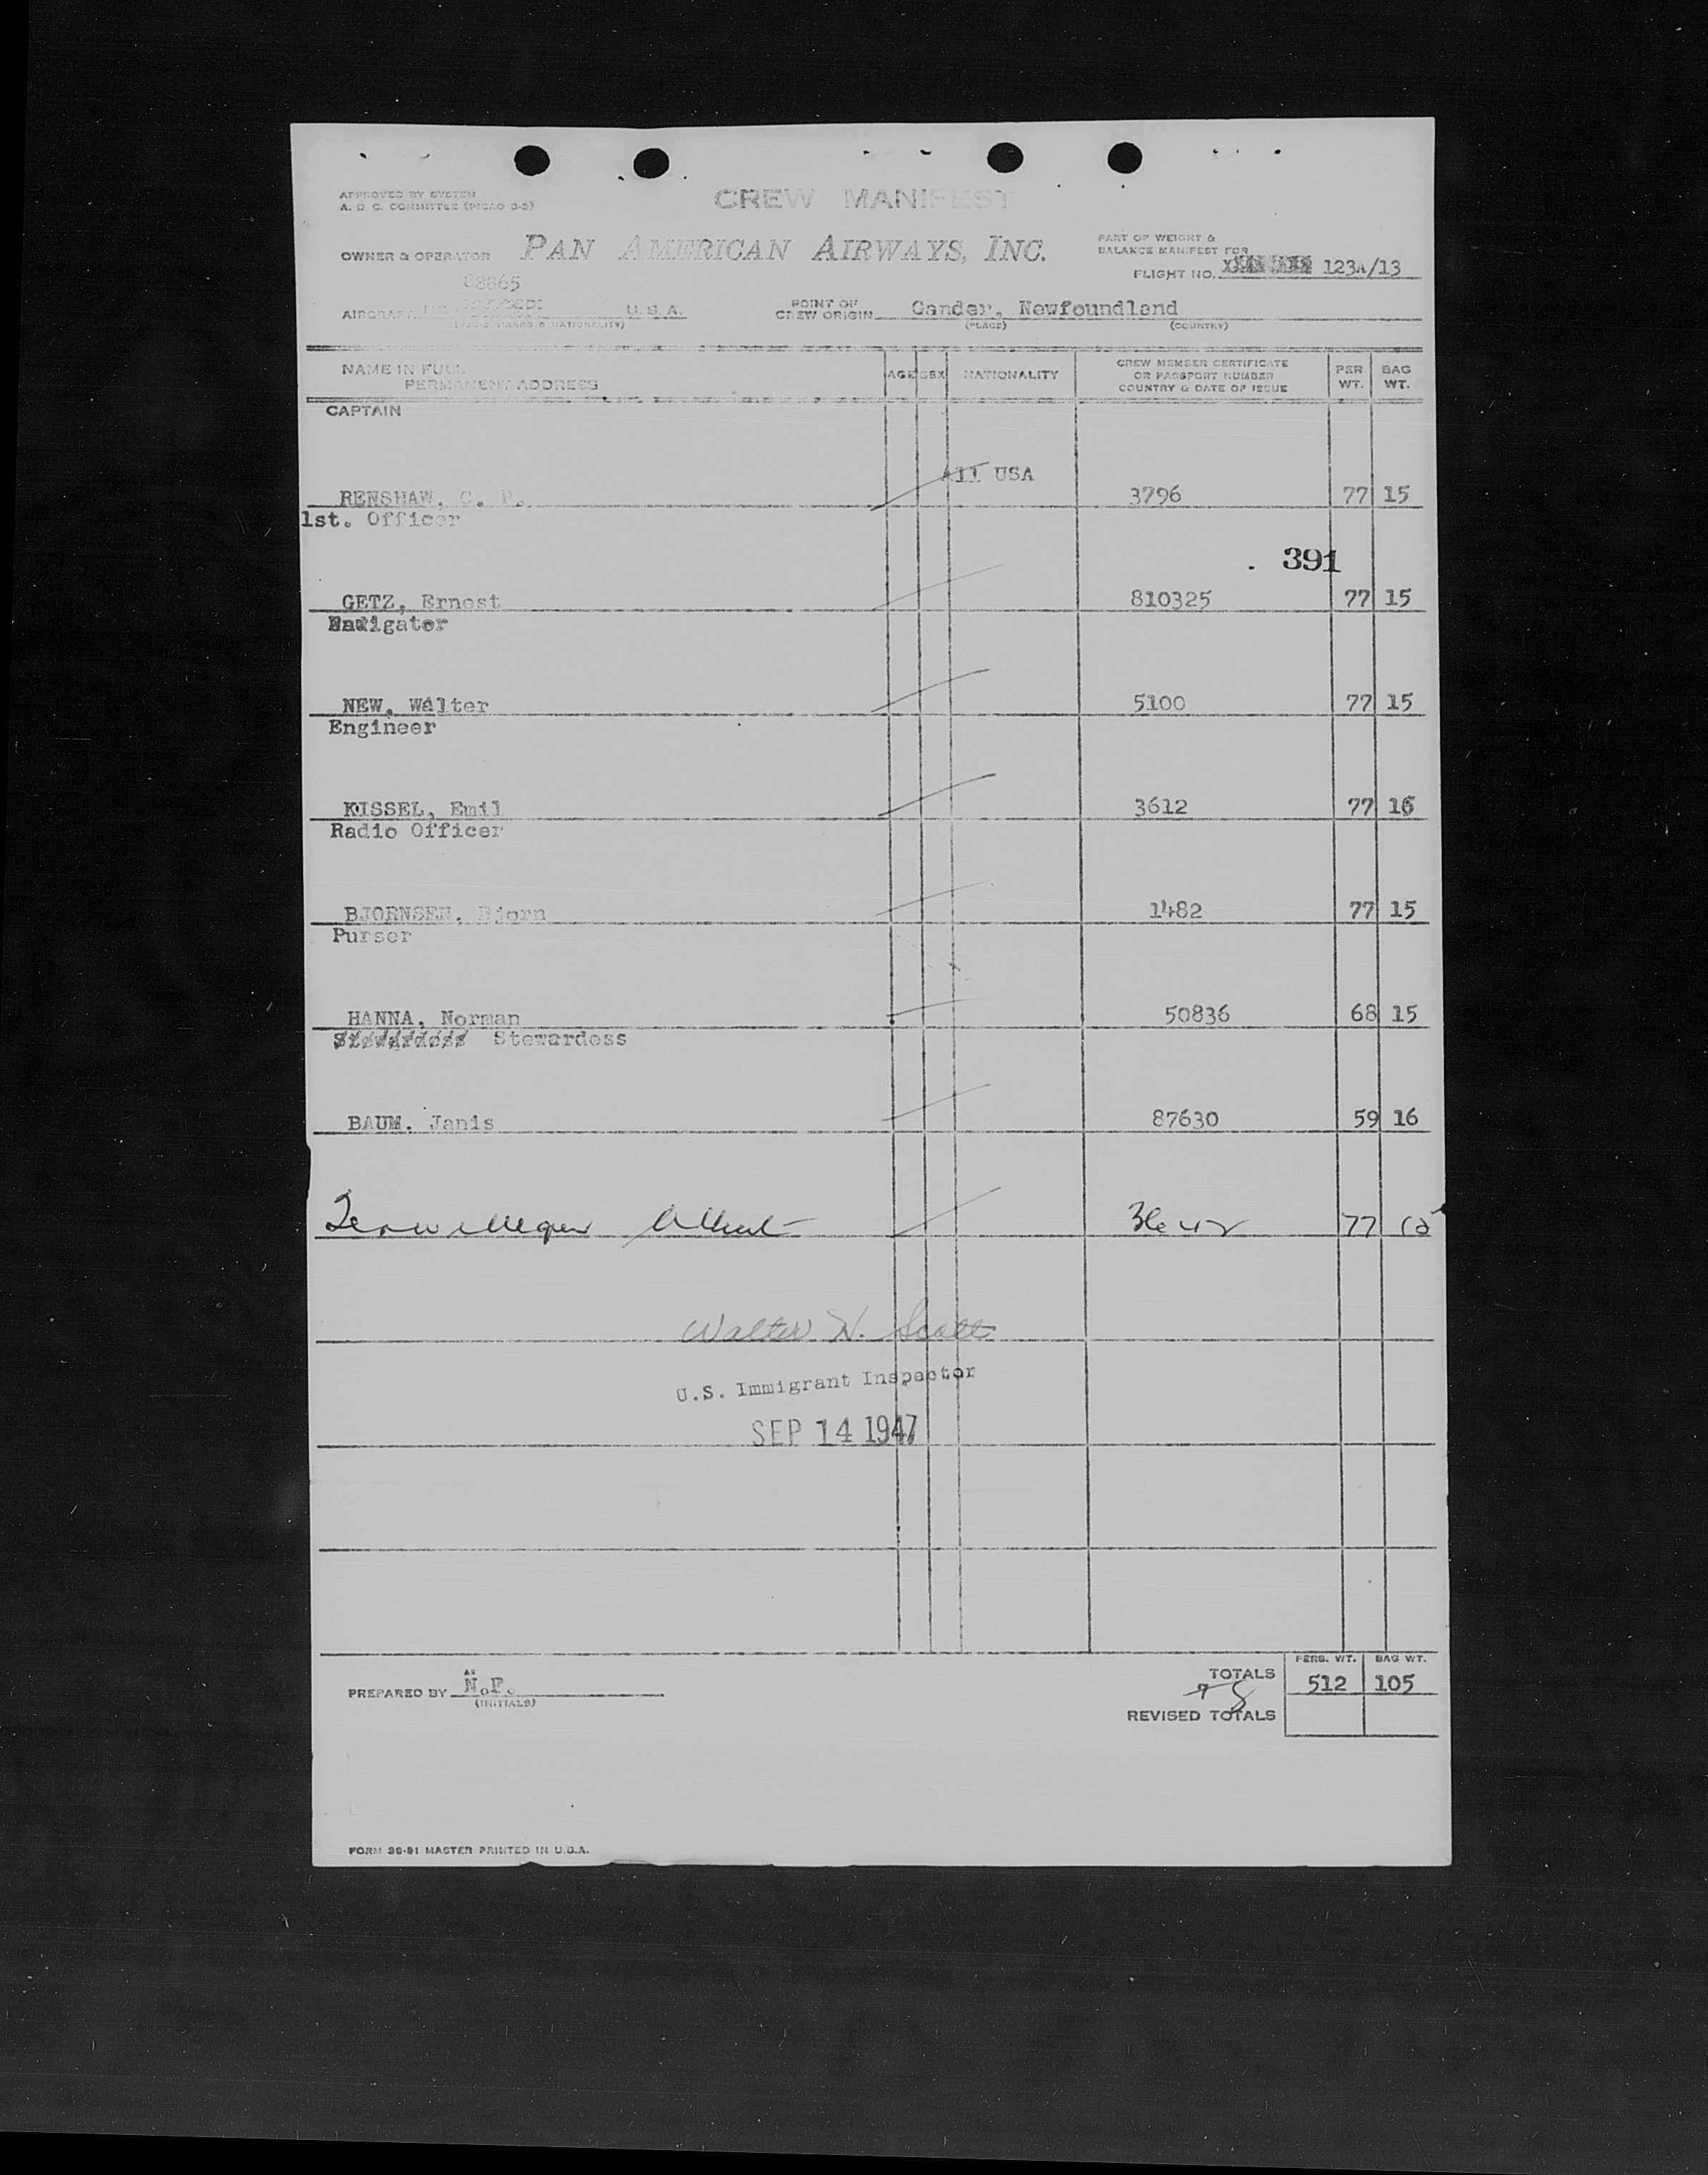 APPROVED BY SYSTEM
A. D. C. COMMITTEE (PICAO 3-3)
CREW MANIFEST
OWNER & OPERATOR PAN AMERICAN AIRWAYS, INC.
PART OF WEIGHT &
BALANCE MANIFEST FOR
FLIGHT NO. 123A/13
88865
AIRCRAFT U.S.A.
POINT OF
CREW ORIGIN Gander, Newfoundland
(PLACE) (COUNTRY)
NAME IN FULL
PERMANENT ADDRESS
AGE SEX NATIONALITY
CREW MEMBER CERTIFICATE
OR PASSPORT NUMBER
COUNTRY & DATE OF ISSUE
PER WT. BAG WT.
CAPTAIN
All USA
RENSHAW, C. 3796 77 15
1st. Officer
391
GETZ, Ernest 810325 77 15
Navigator
NEW, Walter 5100 77 15
Engineer
KISSEL, Emil 3612 77 16
Radio Officer
BJORNSEN, Bjorn 1482 77 15
Purser
HANNA, Norman 50836 68 15
Stewardess
BAUM, Janis 87630 59 16
77 15
Walter N. Scott
U.S. Immigrant Inspector
SEP 14 1947
PERS. WT. BAG WT.
TOTALS 512 105
8
REVISED TOTALS
PREPARED BY N.F.
(INITIALS)
FORM 36-91 MASTER PRINTED IN U.S.A.